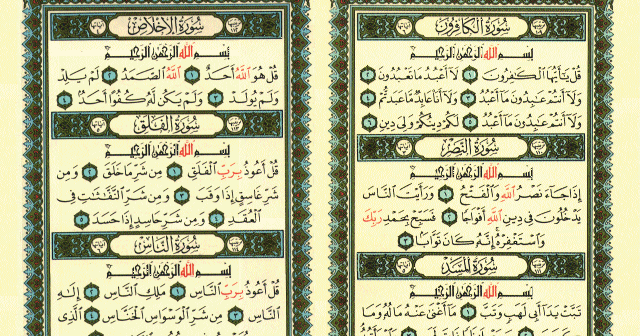 سُورَةُ الْكَافِرُونَ
بِسْمِ اللَّهِ الرَّحْمَٰنِ الرَّحِيمِ
قُلْ يَٰٓأَيُّهَا الْكَٰفِرُونَ ١ لَآ أَعْبُدُ مَا تَعْبُدُونَ ٢
وَلَآ أَنتُمْ عَٰبِدُونَ مَآ أَعْبُدُ ٣ وَلَآ أَنَا۠ عَابِدٌ مَّا عَبَدتُّمْ ٤
وَلَآ أَنتُمْ عَٰبِدُونَ مَآ أَعْبُدُ ٥ لَكُمْ دِينُكُمْ وَلِيَ دِينِ ٦
سُورَةُ النَّصْرِ
بِسْمِ اللَّهِ الرَّحْمَٰنِ الرَّحِيمِ
إِذَا جَآءَ نَصْرُ اللَّهِ وَالْفَتْحُ ١ وَرَأَيْتَ النَّاسَ
يَدْخُلُونَ فِي دِينِ اللَّهِ أَفْوَاجًا ٢ فَسَبِّحْ بِحَمْدِ رَبِّكَ
وَاسْتَغْفِرْهُ ۚ إِنَّهُ كَانَ تَوَّابًا ٣
سُورَةُ الْمَسَدِ
بِسْمِ اللَّهِ الرَّحْمَٰنِ الرَّحِيمِ
تَبَّتْ يَدَآ أَبِي لَهَبٍ وَتَبَّ ١ مَآ أَغْنَىٰ عَنْهُ مَالُهُ وَمَا
سُورَةُ الْإِخْلَاصِ
بِسْمِ اللَّهِ الرَّحْمَٰنِ الرَّحِيمِ
قُلْ هُوَ اللَّهُ أَحَدٌ ١ اللَّهُ الصَّمَدُ ٢ لَمْ يَلِدْ
وَلَمْ يُولَدْ ٣ وَلَمْ يَكُن لَّهُ كُفُوًا أَحَدٌ ٤
سُورَةُ الْفَلَقِ
بِسْمِ اللَّهِ الرَّحْمَٰنِ الرَّحِيمِ
قُلْ أَعُوذُ بِرَبِّ الْفَلَقِ ١ مِن شَرِّ مَا خَلَقَ ٢ وَمِن
شَرِّ غَاسِقٍ إِذَا وَقَبَ ٣ وَمِن شَرِّ النَّفَّٰثَٰتِ فِي
الْعُقَدِ ٤ وَمِن شَرِّ حَاسِدٍ إِذَا حَسَدَ ٥
سُورَةُ النَّاسِ
بِسْمِ اللَّهِ الرَّحْمَٰنِ الرَّحِيمِ
قُلْ أَعُوذُ بِرَبِّ النَّاسِ ١ مَلِكِ النَّاسِ ٢ إِلَٰهِ
النَّاسِ ٣ مِن شَرِّ الْوَسْوَاسِ الْخَنَّاسِ ٤ الَّذِي